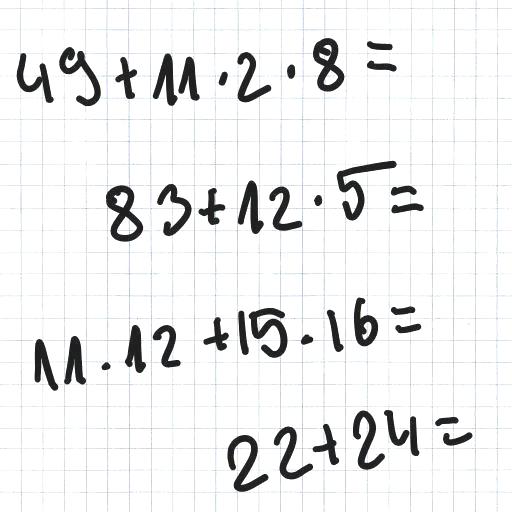 49+11·2·8=
83+12·5=
11·12+15·16=
22+24=